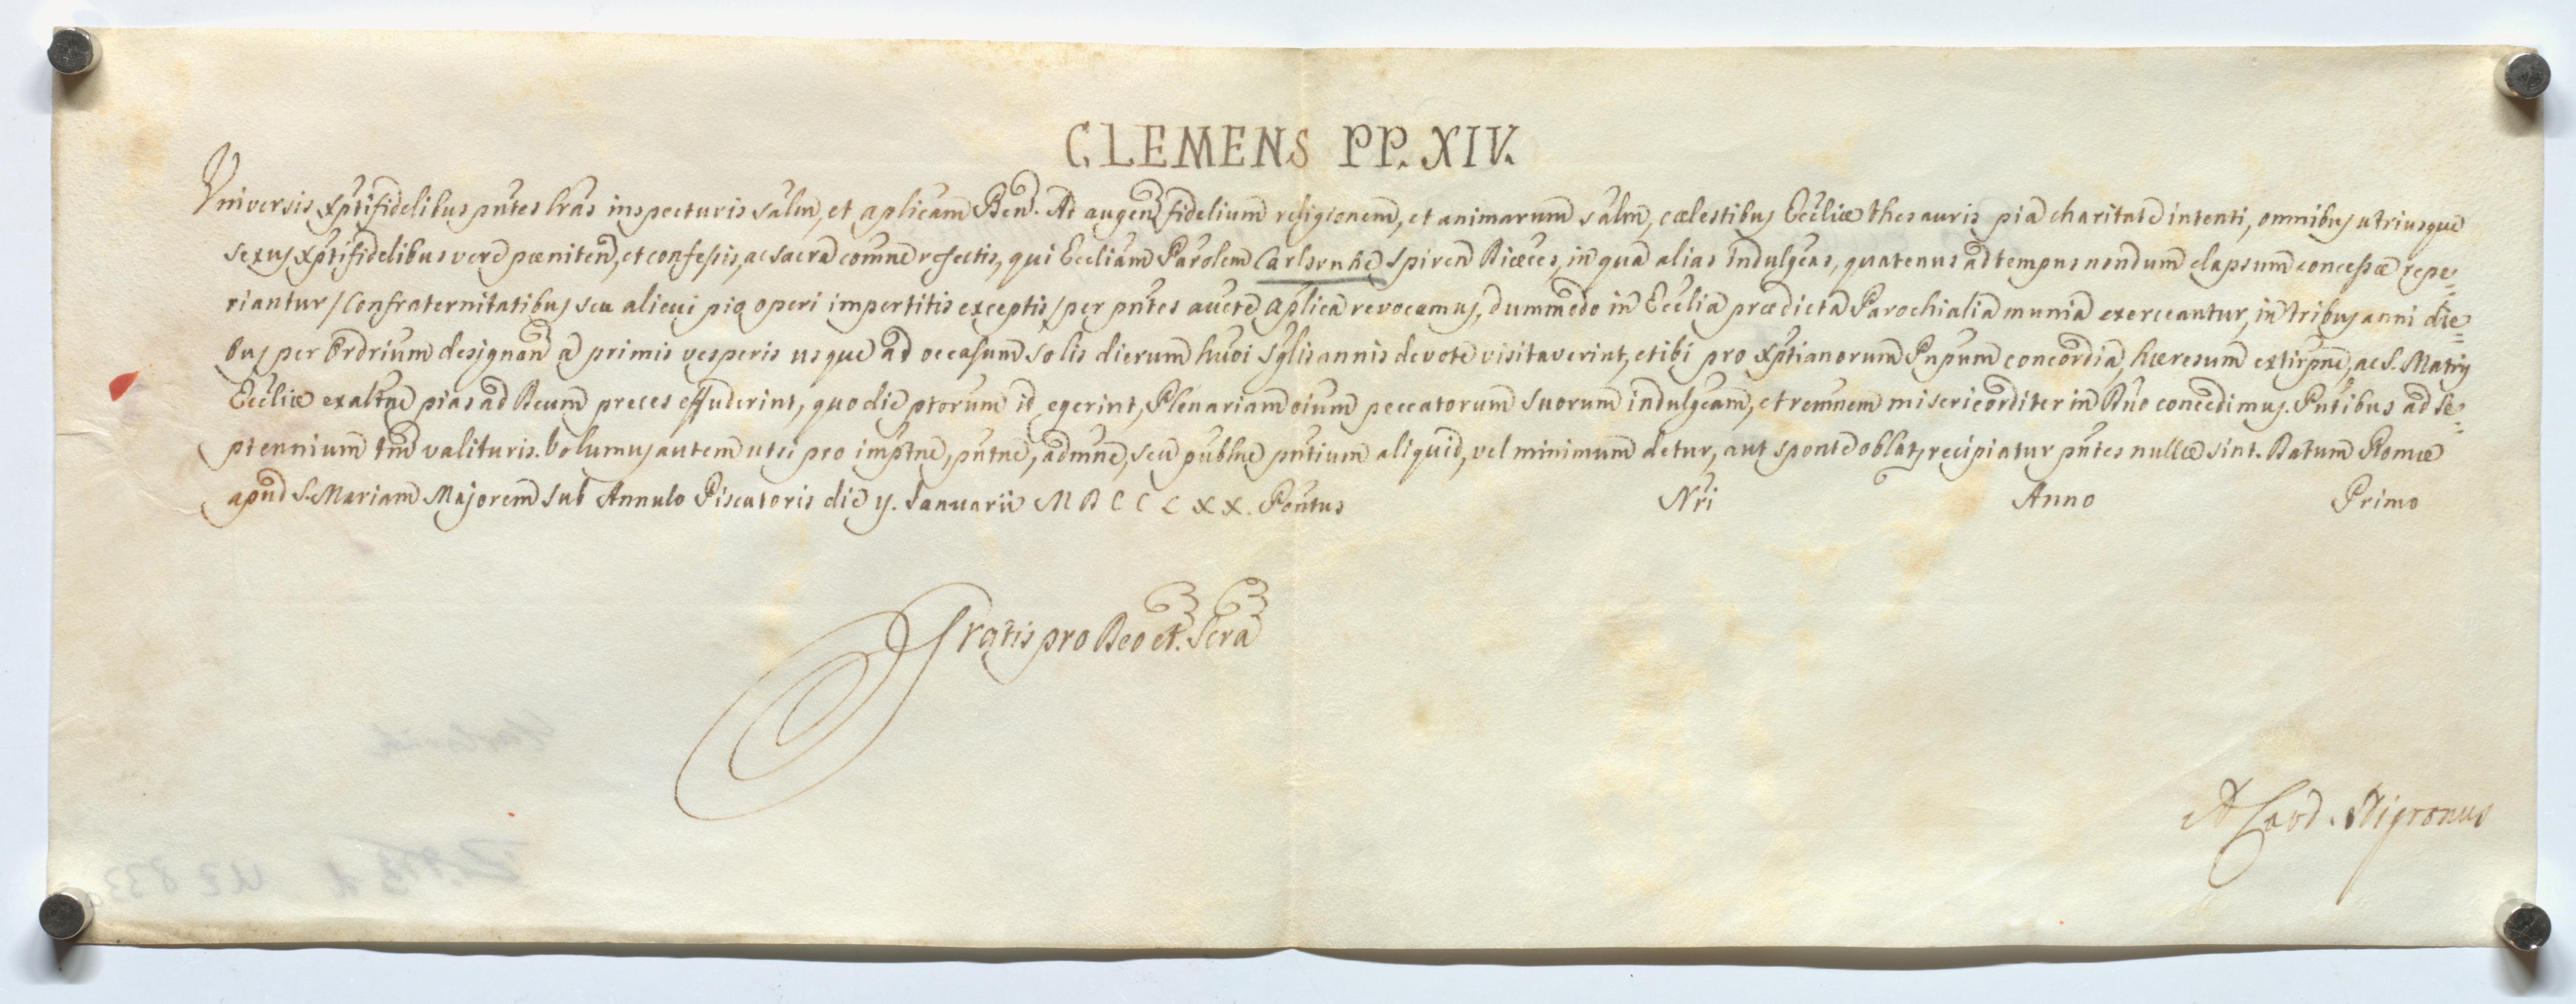 CLEMENS PP. XIV.
Universis Xptifidelibus pntes lras inspecturis salm, et aplicam Ben. Ad augen fidelium religionem, et animarum salm, cælestibus Ecclíæ thesauris pia charitate intenti, omnibus utriusque
sexus Xptifidelibus vere pæniten, et confessis, ac sacra comne refectis, qui Eccliam Parolem Carlsrnhe Spiren Diæces, in qua alias Indulgeas, quatenus ad tempus nondum elapsum concessæ repe=
riantur / Confraternitatibus seu alicui pio operi impertitis exceptis / per pntes aucte aplica revocamus, dummodo in Ecclia prædicta Parochialia munia exerceantur, in tribus anni die=
bus per Ordrium designan a primis vesperis usque ad occasum solis dierum huoi sglis annis devote visitaverint, et ibi pro Xptianorum Pnpum concordia, hæresum extirpne, ac S. Matris
Ecclíæ exaltne pias ad Deum preces effuderint, quo die ptorum id egerint, Plenariam oium peccatorum suorum indulgeam, et remnem misericorditer in Dno concedimus. Pntibus ad Se=
ptennium tm valituris. Volumus autem ut si pro imptne, pntne, admne, seu publne pntium aliquid, vel minimum detur, aut sponte oblat, recipiatur pntes nullæ sint. Datum Romæ
apud S. Mariam Majorem sub Annulo Piscatoris die y. Januarii MDCCLXX. Pontus Nri Anno Primo
Gratis pro Deo et. Scra
A Card. Nigronus